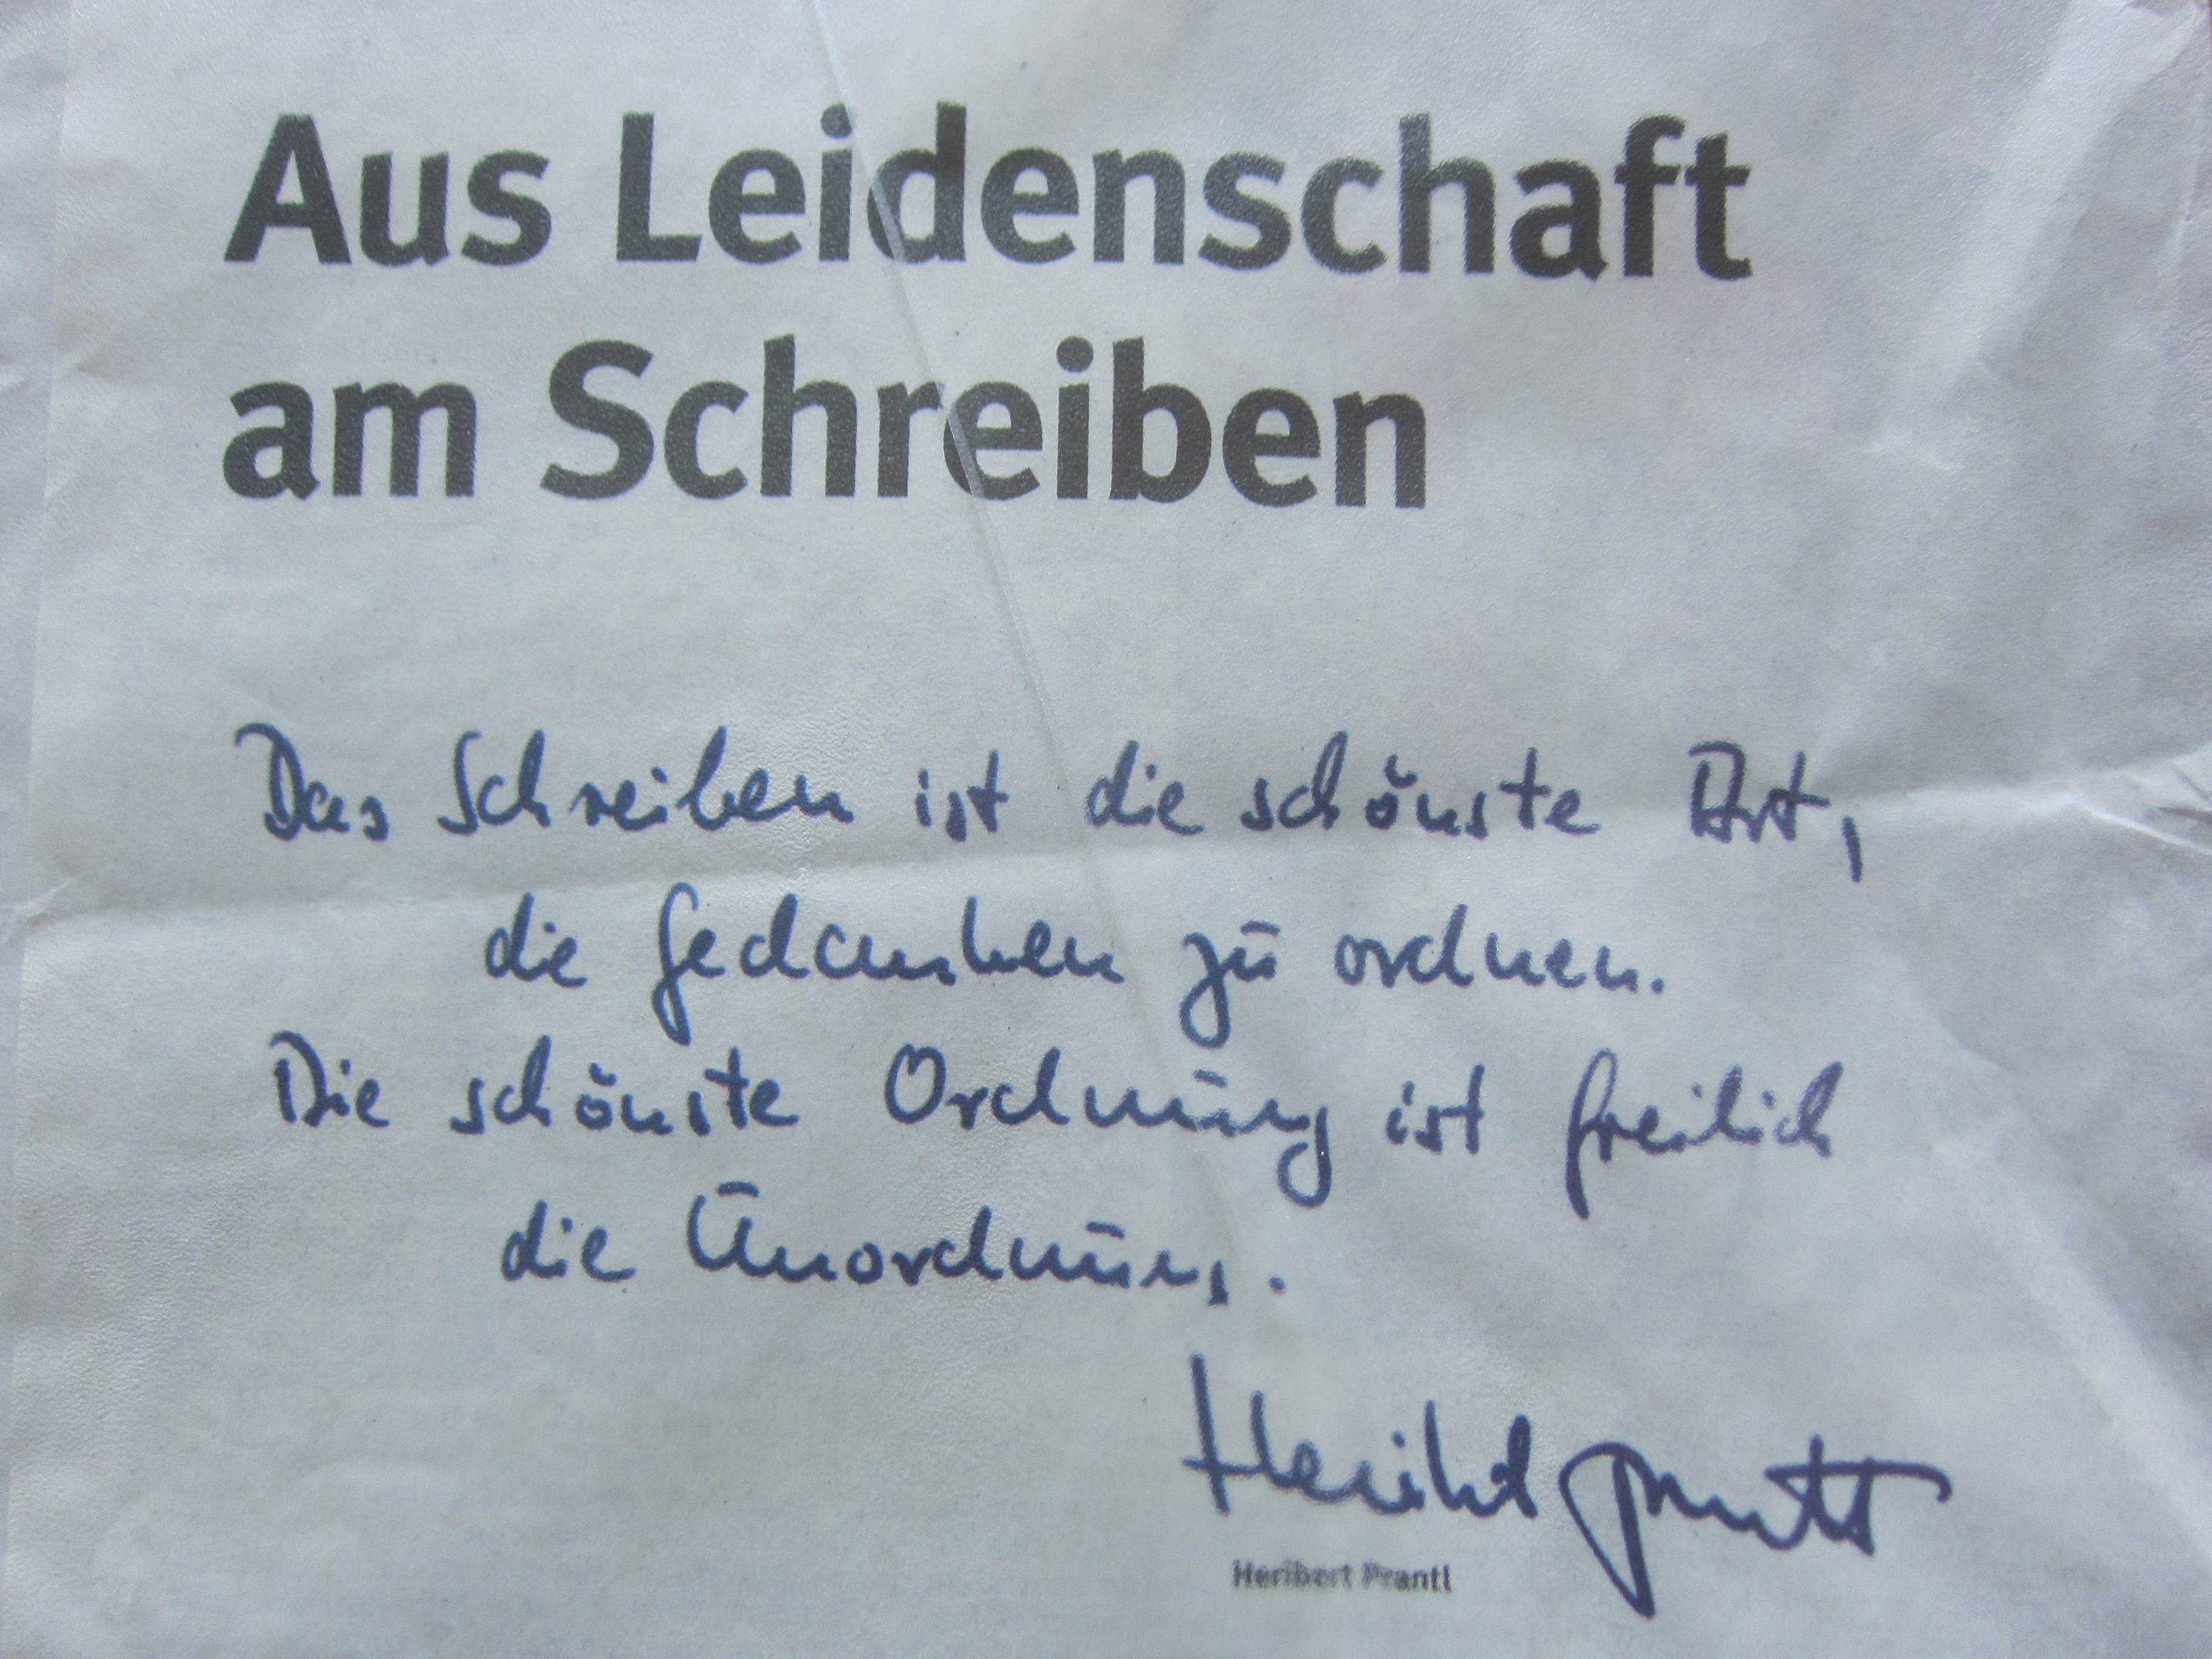 Aus Leidenschaft
am Schreiben
Das Schreiben ist die schönste Art,
die Gedanken zu ordnen.
Die schönste Ordnung ist freilich
die Unordnung.
Heribert Prantl
Heribert Prantl